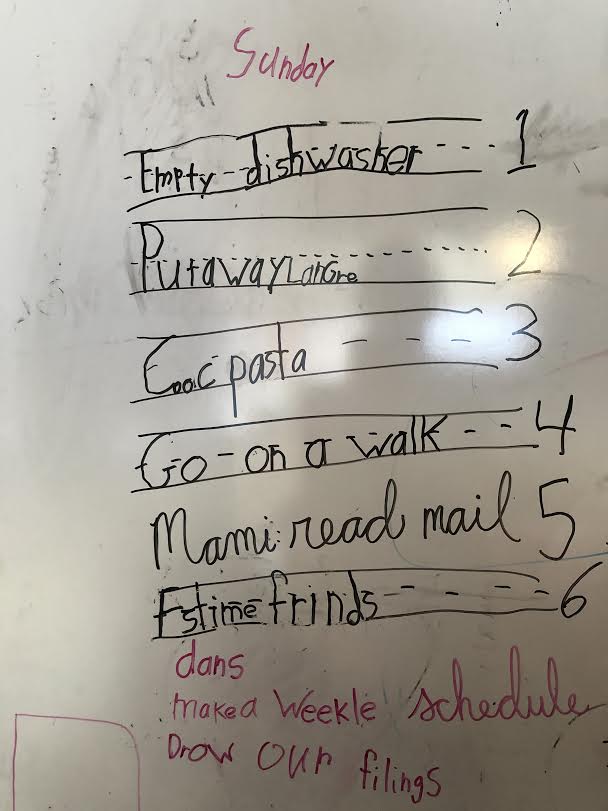 Sunday
Empty dishwasher 1
Putaway LanGre 2
Cooc pasta 3
Go - on a walk 4
Mami read mail 5
Fstime frinds 6
dans
makea weekle schedule
Drow our filings